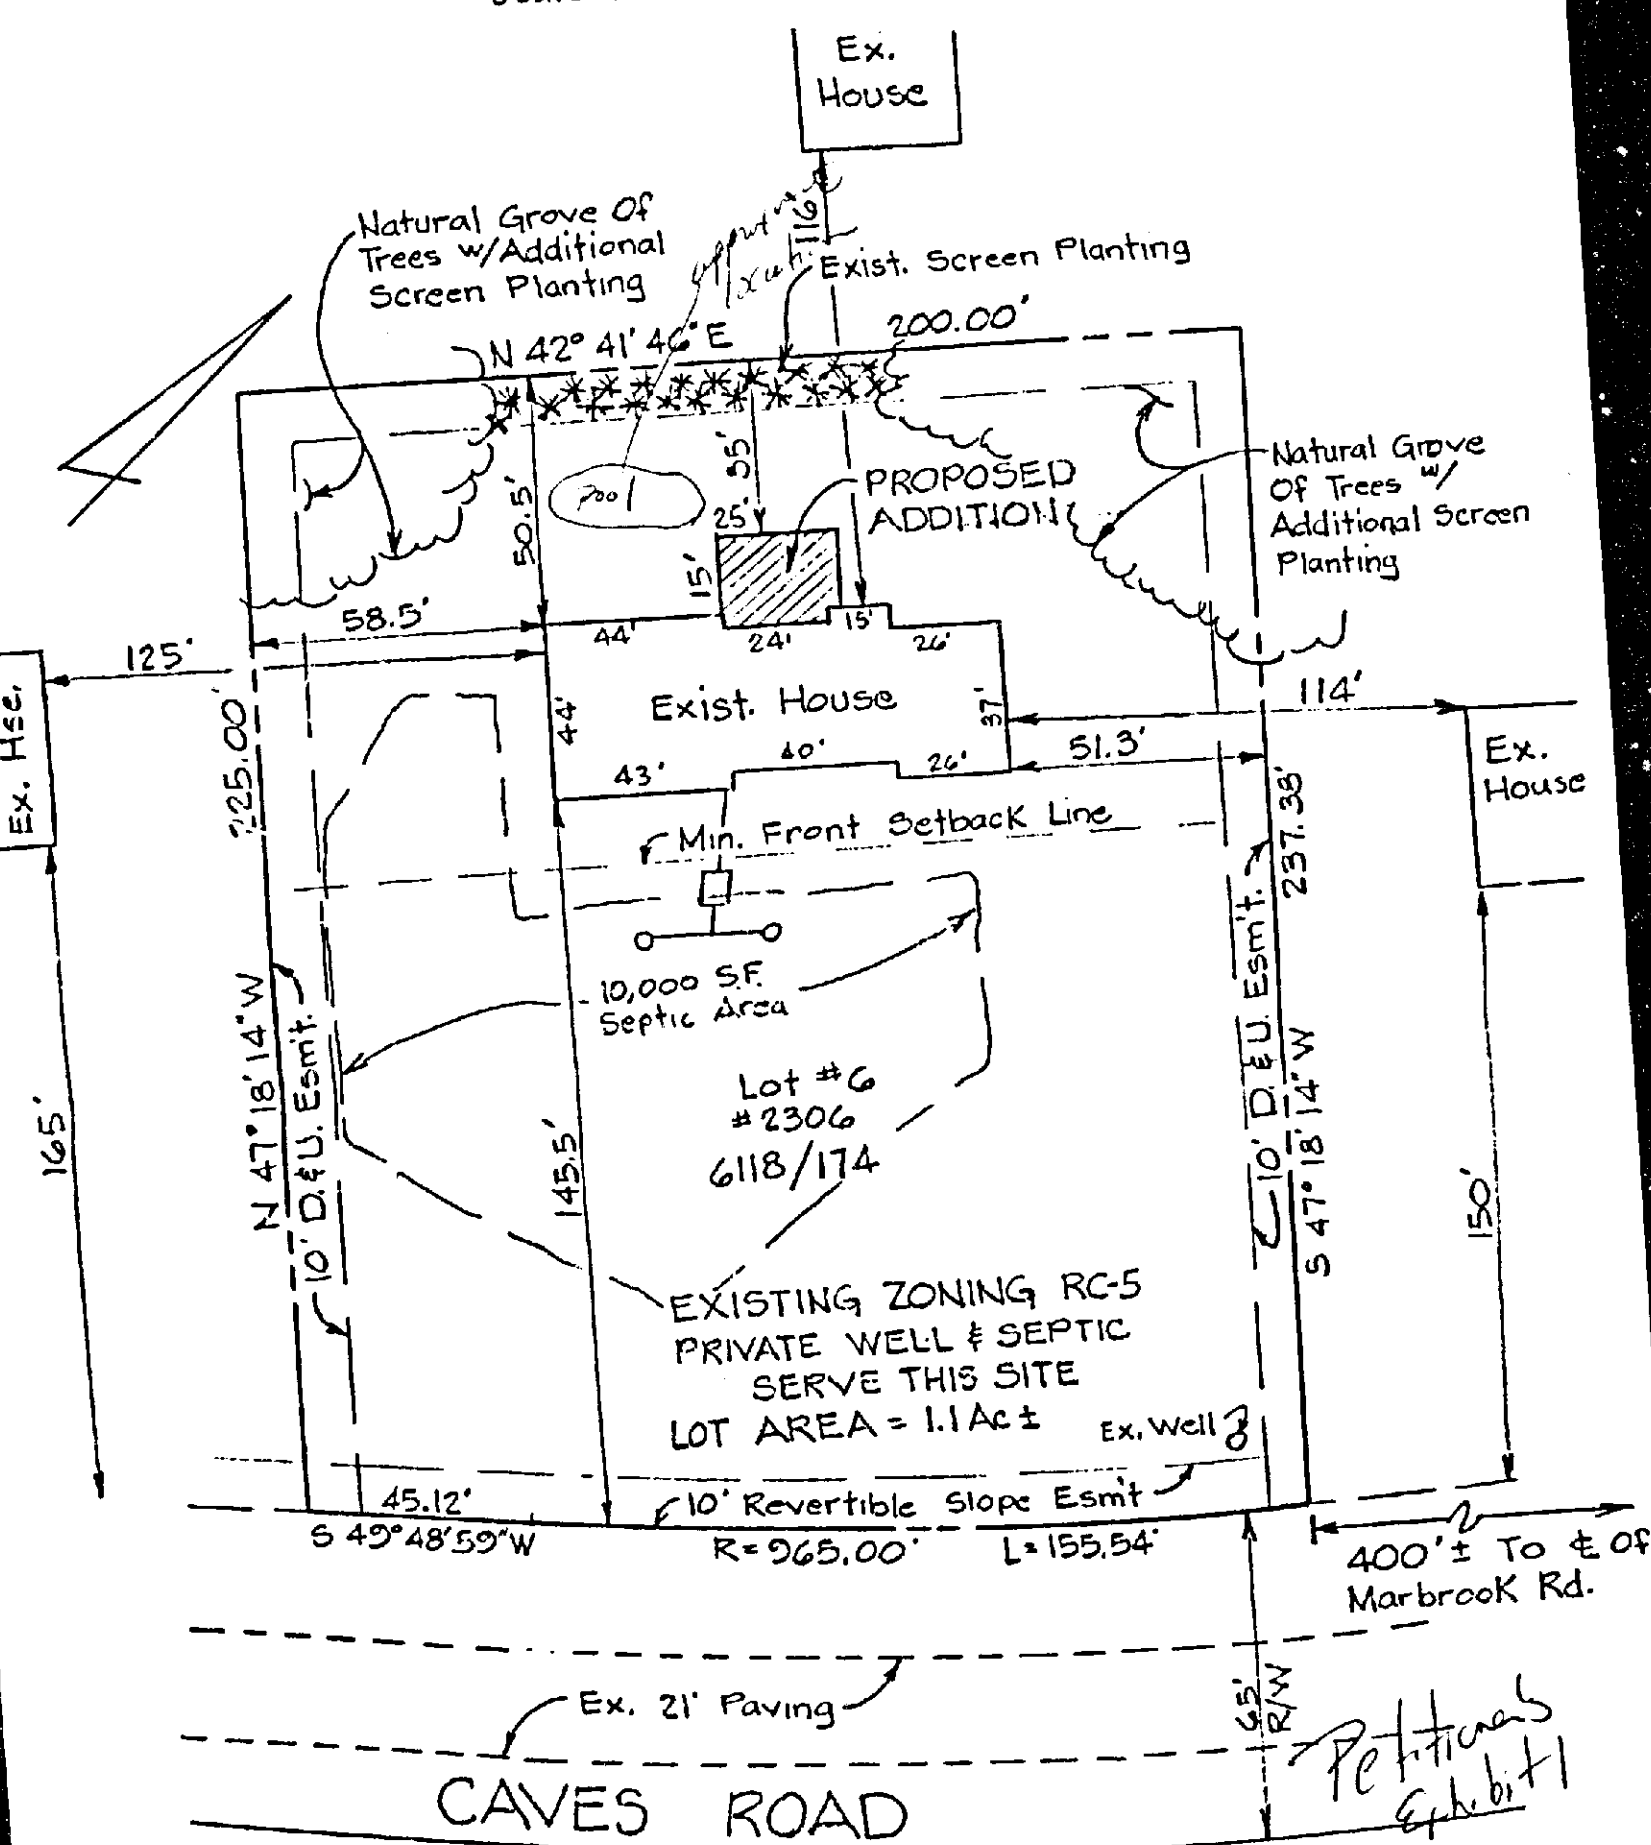 Ex.
House
116'
Natural Grove Of
Trees w/Additional
Screen Planting
Exist. Screen Planting
N 42° 41' 46" E
200.00'
Natural Grove
Of Trees w/
Additional Screen
Planting
pool
50.5'
35'
25'
15'
PROPOSED
ADDITION
58.5'
125'
44'
24'
15'
26'
Ex. Hse.
225.00'
44'
Exist. House
37'
114'
51.3'
Ex.
House
43'
40'
26'
Min. Front Setback Line
237.33'
10,000 S.F.
Septic Area
N 47° 18' 14" W
10' D.&U. Esm't.
10' D.&U. Esm't.
S 47° 18' 14" W
Lot #6
#2306
6118/174
165'
145.5'
150'
EXISTING ZONING RC-5
PRIVATE WELL & SEPTIC
SERVE THIS SITE
LOT AREA = 1.1 Ac ±
Ex. Well
45.12'
10' Revertible Slope Esm't
S 49° 48' 59" W
R= 965.00'
L= 155.54'
400'± To ℄ Of
Marbrook Rd.
Ex. 21' Paving
65'
R/W
CAVES ROAD
Petitioner's
Exhibit 1